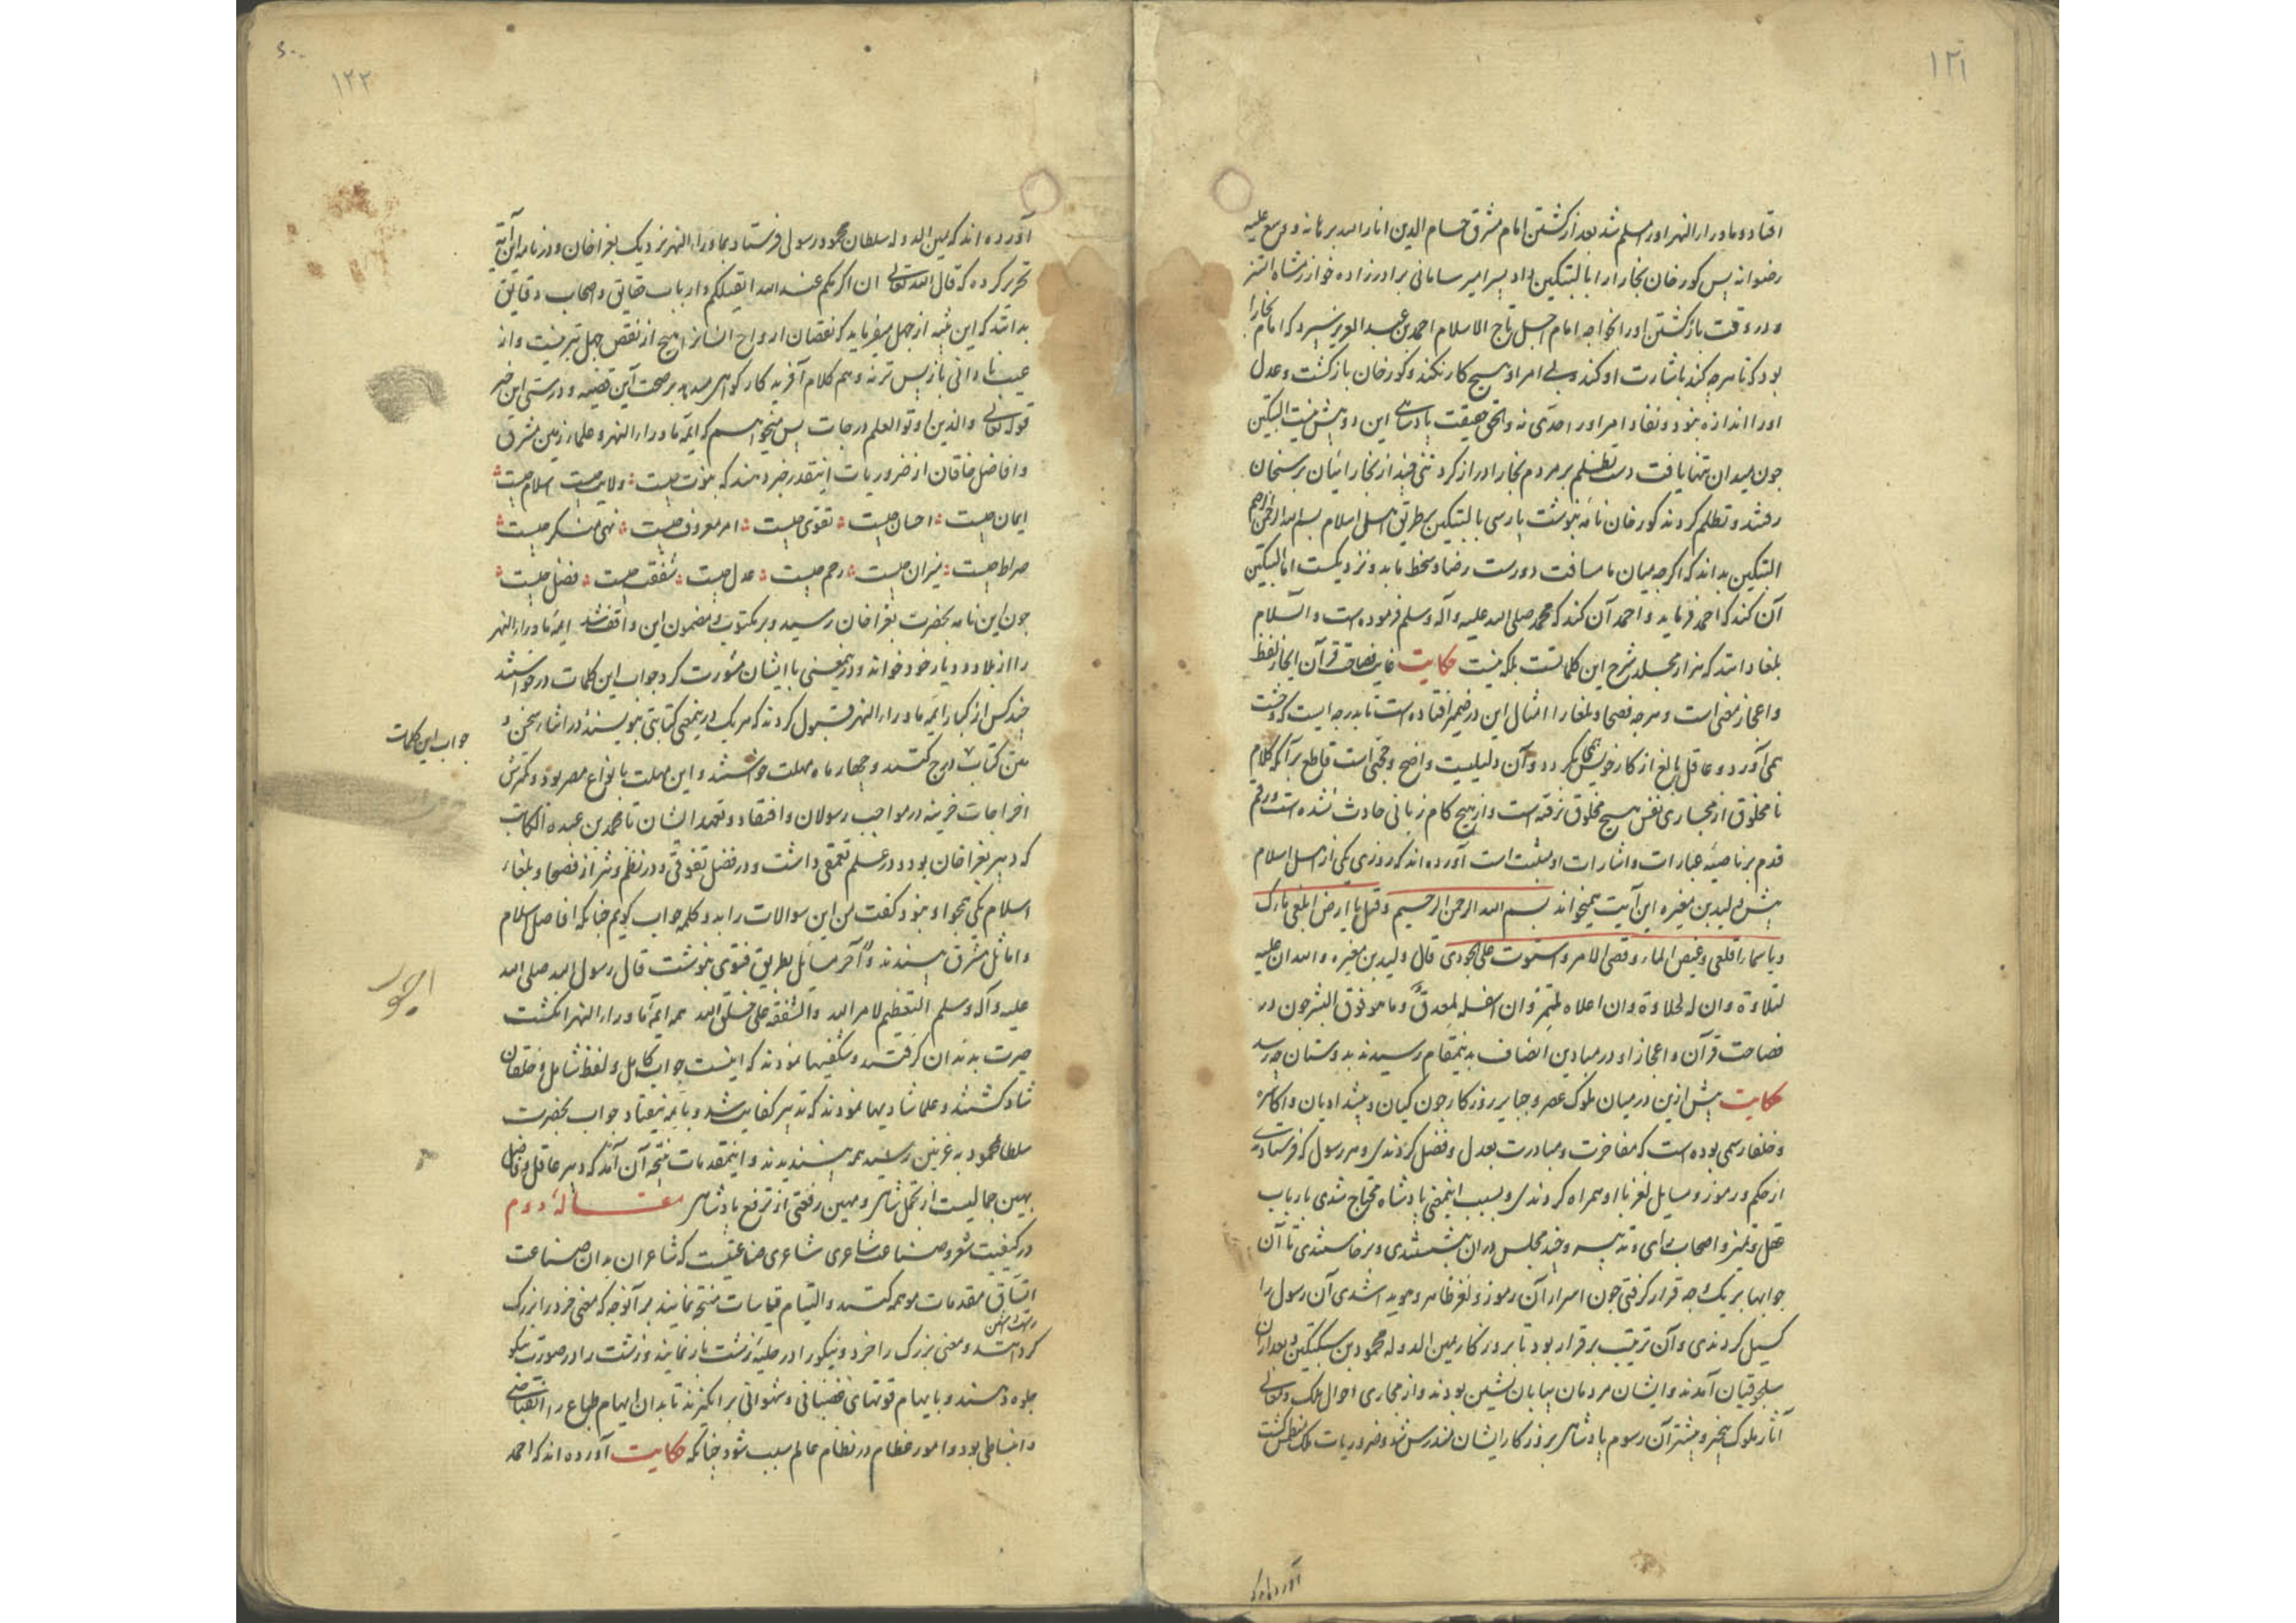 ۱۲۱
افتاد و ماوراء النهر او را مسلم شد بعد از کشتن امام مشرق حسام الدین انار الله برهانه و وسع علیه
رضوانه پس کورخان بخارا را بالبتکین داد پسر امیر سامانی برادرزاده خوارزمشاه اتسز
و در وقت بازکشتن او را بخواجه امام اجل تاج الاسلام احمد بن عبد العزیز سپرد که امام بخارا
بود که تا هرچه کند باشارت او کند و بی امر او هیچ کار نکند و کورخان بازکشت و عدل
او را اندازه نبود و نفاذ امر او را حدی نه و الحق حقیقت پادشاهی ازین دو بیش نیست البتکین
چون میدان تنها یافت دست بظلم برد و مردم بخارا دراز کرد تنی چند از بخارائیان برسخان
رفتند و تظلم کردند کورخان نامه نبوشت پارسی بالبتکین بر طریق اهل اسلام بسم الله الرحمن الرحیم
البتکین بداند که اکرچه میان ما مسافت دورست رضا و سخط ما بدو نزدیکست اما البتکین
آن کند که احمد فرماید و احمد آن کند که محمد صلی الله علیه و آله و سلم فرموده است و السلام
بلغا دانند که هزار مجلد شرح این کلماتست بلکه نیست حکایت غایت فصاحت قرآن ایجاز لفظ
و اعجاز معنی است و هرچه فصحا و بلغا را امثال این در ضمیر افتاده است تا بدرجه ایست که وحشت
همی آورد و عاقل بالغ از کار خویش همی بگردد و آن دلیلیست واضح و حجتی است قاطع بر آنکه کلام
نامخلوق از مجاری نفس هیچ مخلوق نرفته است و از هیچ کام زبانی حادث نشده است و رقم
قدم بر ناصیه عبارات و اشارات او مثبت است آورده اند که روزی یکی از اهل اسلام
پیش ولید بن مغیره این آیت همیخواند بسم الله الرحمن الرحیم و قیل یا ارض ابلعی ماءک
و یا سماء اقلعی و غیض الماء و قضی الامر و استوت علی الجودی قال ولید بن مغیره و الله ان علیه
لتلاوة و ان له لحلاوة و ان اعلاه لمثمر و ان اسفله لمعدق و ما هو فوق البشر چون در
فصاحت قرآن و اعجاز او در میادین انصاف بدینمقام رسیدند بدوستان چه رسد
حکایت پیش ازین در میان ملوک عصر و جبابره روزکار چون کیان و پیشدادیان و اکاسره
و خلفا رسمی بوده است که مفاخرت و مبادرت بعدل و فضل کردندی و هر رسول که فرستادندی
از حکم و رموز و مسایل لغز با او همراه کردندی و بسبب اینمعنی پادشاه محتاج شدی بارباب
عقل و تمیز و اصحاب رای و تدبیر و چند مجلس در ان بنشستندی و برخاستندی تا آن
جوابها بر یک وجه قرار کرفتی چون اسرار آن رموز و لغز ظاهر و هویدا شدی آن رسول را
کسیل کردندی و آن ترتیب برقرار بود تا بروزکار یمین الدوله محمود بن سبکتکین و بعد از ان
سلجوقیان آمدند و ایشان مردمان بیابان نشین بودند و از مجاری احوال ملک و معالی
آثار ملوک بیخبر و بیشتر آن رسوم پادشاهی بروزکار ایشان مندرس شد و ضروریات ملک منطمس کشت
آورده اند که
۱۲۲
آورده اند که یمین الدوله سلطان محمود رسولی فرستاد بماوراء النهر نزدیک بغراخان و در نامه این آیه
تحریر کرده که قال الله تعالی ان اکرمکم عند الله اتقیکم و ارباب حقایق و اصحاب دقایق
بدانند که این تقیه از جهل میفرماید که نقصان ارواح انسانرا هیچ از نقص جهل بتر نیست و از
عیب نادانی بازپس تر نه و هم کلام آفریدکار کواهی میدهد بر صحت این قضیه و درستی این خبر
قوله تعالی و الذین اوتوا العلم درجات پس میخواهیم که ایمه ماوراء النهر و علماء زمین مشرق
و افاضل خاقان از ضروریات اینقدر خبر دهند که نبوت چیست ولایت چیست اسلام چیست
ایمان چیست احسان چیست تقوی چیست امر معروف چیست نهی منکر چیست
صراط چیست میزان چیست رحم چیست عدل چیست شفقت چیست فضل چیست
چون این نامه بحضرت بغراخان رسید و بر مکتوب و مضمون این واقف شد ایمه ماوراء النهر
را از بلاد و دیار خود خواند و درینمعنی با ایشان مشورت کرد جواب این کلمات درخواستند
چند کس از کبار ایمه ماوراء النهر قبول کردند که هر یک درینمعنی کتابتی بنویسند و در اثناء سخن و
جواب این کلمات
متن کتاب درج کنند و چهار ماه مهلت خواستند و این مهلت بانواع مضر بود و کمترش
اخراجات خزینه در مواجب رسولان و افتقاد و تعهد ایشان تا محمد بن عبده الکاتب
که دبیر بغراخان بود و در علم تعمقی داشت و در فضل تفوقی و در نظم و نثر از فصحا و بلغاء
اسلام یکی همچو او نبود کفت من این سوالات را بدو کلمه جواب کویم چنانکه افاضل اسلام
و اماثل مشرق بپسندند و در آخر مسایل بطریق فتوی نبوشت قال رسول الله صلی الله
علیه و آله و سلم التعظیم لامر الله و الشفقة علی خلق الله همه ایمه ماوراء النهر انکشت
حیرت بدندان کرفتند و شکفتیها نمودند که اینست جواب کامل و لفظ شامل و خاقان
شاد کشتند و علما شادیها نمودند که تدبیر کفایت شد و بایمه نیفتاد جواب بحضرت
سلطان محمود به غزنین رسید همه بپسندیدند و اینمقدمات نتیجه آن آمد که دبیر عاقل و فاضل
بهین جمالیست از تجمل شاهی و مهین رفعتی از ترفع پادشاهی مقاله دوم
در کیفیت شعر و صناعت شاعری شاعری صناعتیست که شاعران بدان صناعت
اتساق مقدمات موهمه کنند و التیام قیاسات منتجه نمایند بر آنوجه که معنی خرد را بزرک
کردانند و معنی بزرک را خرد و نیکو را در حلیه زشت باز نمایند و زشت را در صورت نیکو
جلوه دهند و بایهام قوتهای غضبانی و شهوانی برانکیزند تا بدان ایهام طباع را انقباضی
و انبساطی بود و امور عظام در نظام عالم سبب شود چنانکه حکایت آورده اند که احمد